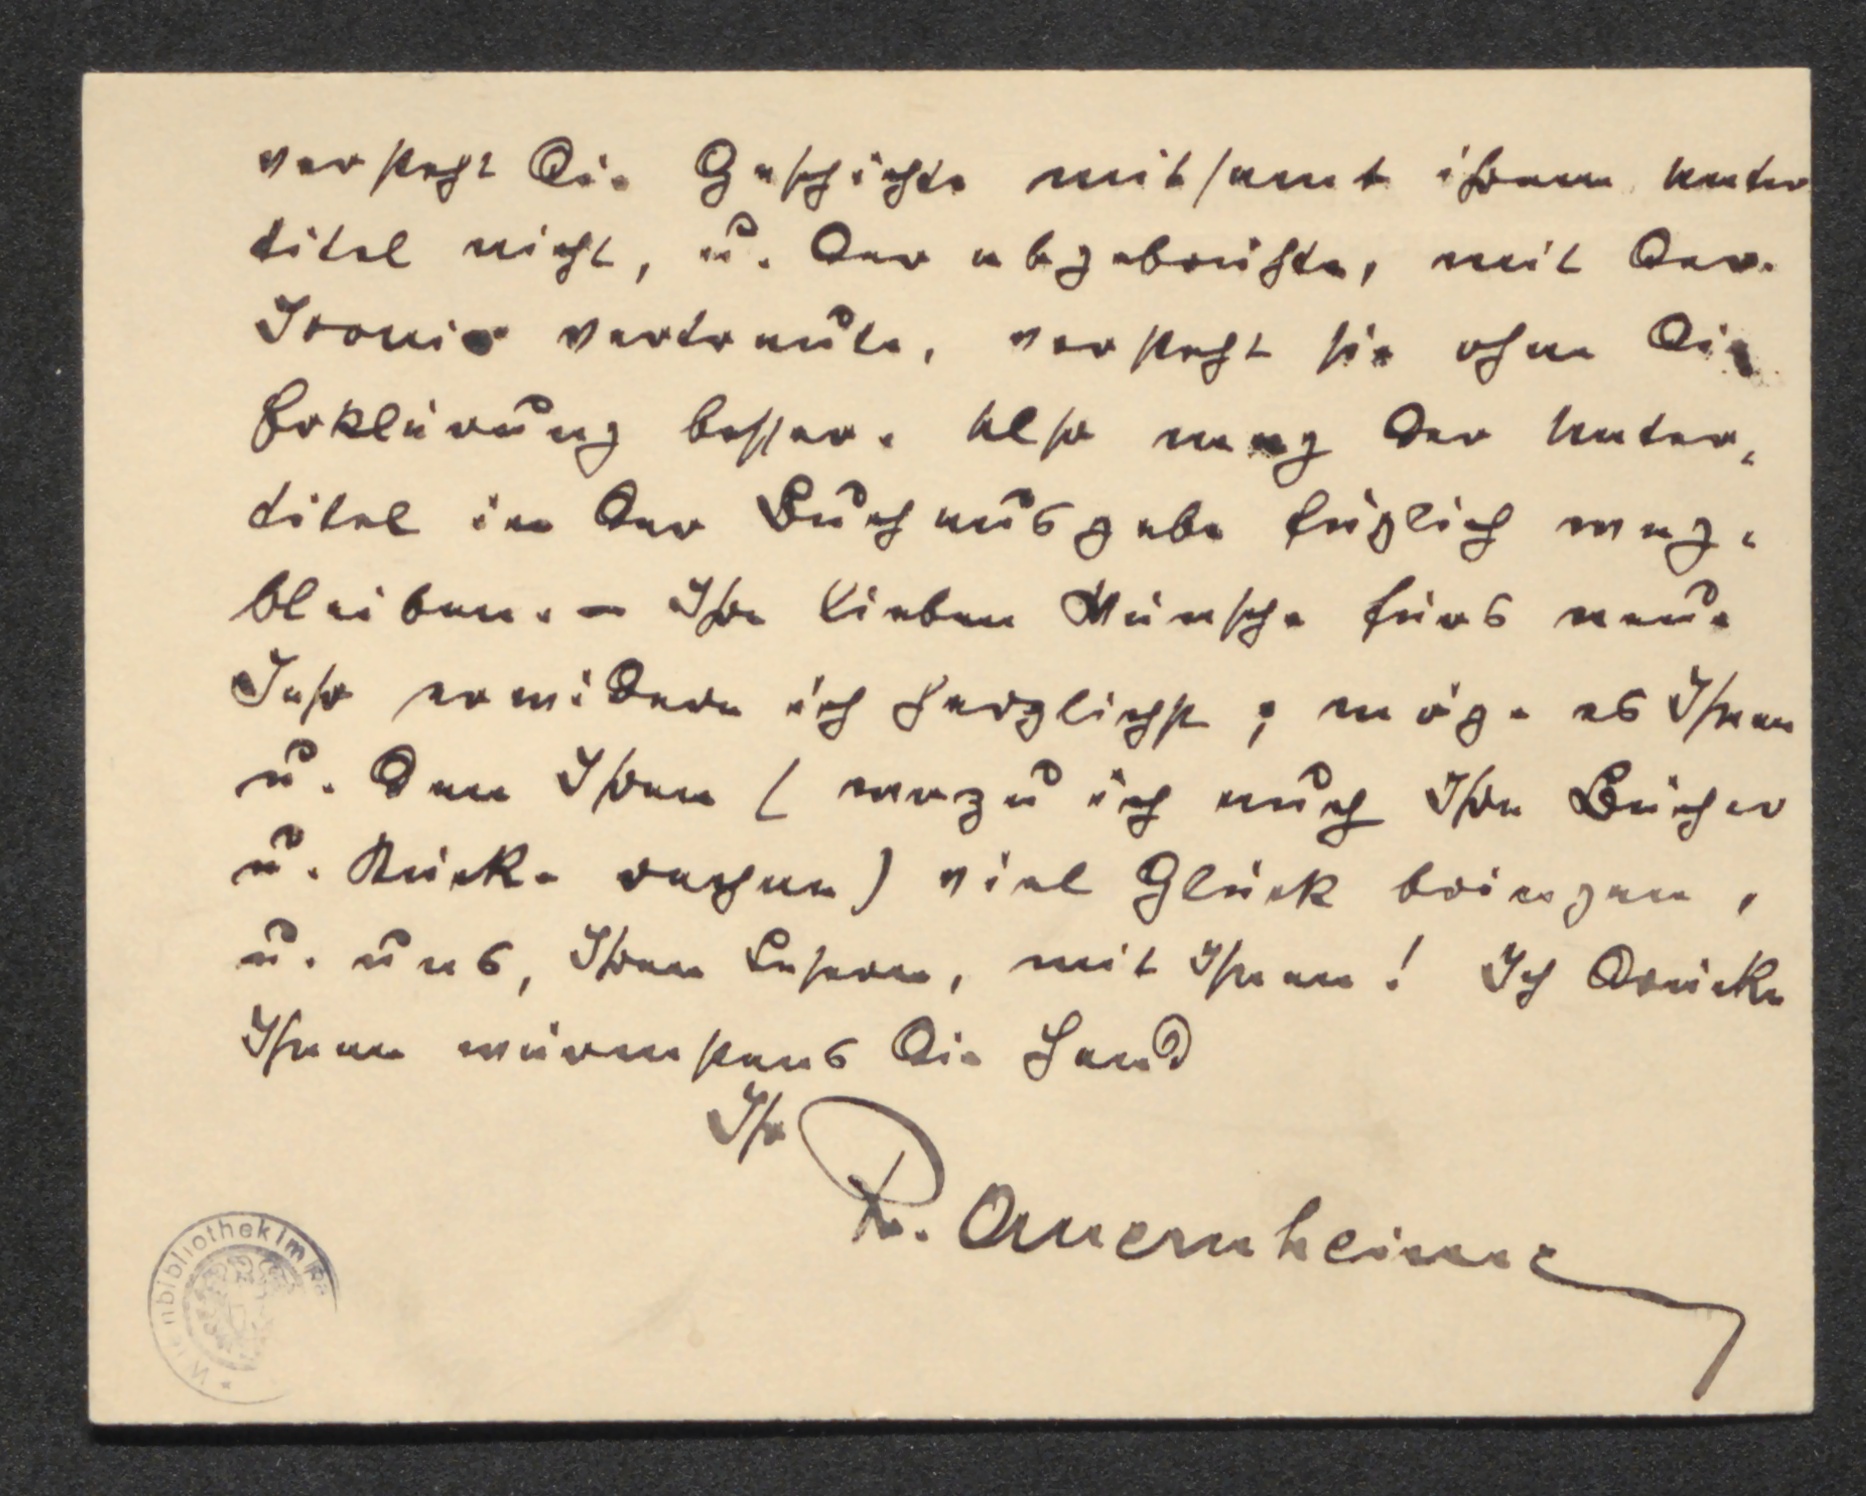 versteht die Geschichte mitsamt ihrem Unter
titel nicht, u. der abgebrühte, mit der
Ironie vertraute, versteht sie ohne die
Erklärung besser. Also mag der Unter-
titel in der Buchausgabe füglich weg-
bleiben. – Ihre lieben Wünsche fürs neue
Jahr erwidere ich herzlichst; möge es Ihnen
u. den Ihren (wozu ich auch Ihre Bücher
u. Stücke rechne) viel Glück bringen,
u. uns, Ihren Lesern, mit Ihnen! Ich drücke
Ihnen wärmstens die Hand
Ihr
R. Auernheimer
nbibliothek im